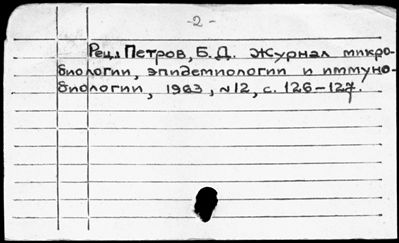 -2-
Рец. Петров, Б.Д. Журнал микро-
биологии, эпидемиологии и иммуно-
биологии, 1963, №12, с. 126-127.